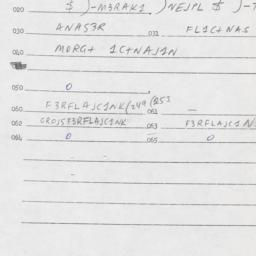 020 $ )-M3RAK1 )NEJPL $ )-T
030 ANAS3R 031 FL1C+NAS
040 MORG+ 1C+NAJ1N
050 0
060 F3RFLAJC1NK/249 (253 061 —
062 CROJSF3RFLAJC1NK 063 F3RFLAJC1N
064 0 065 0